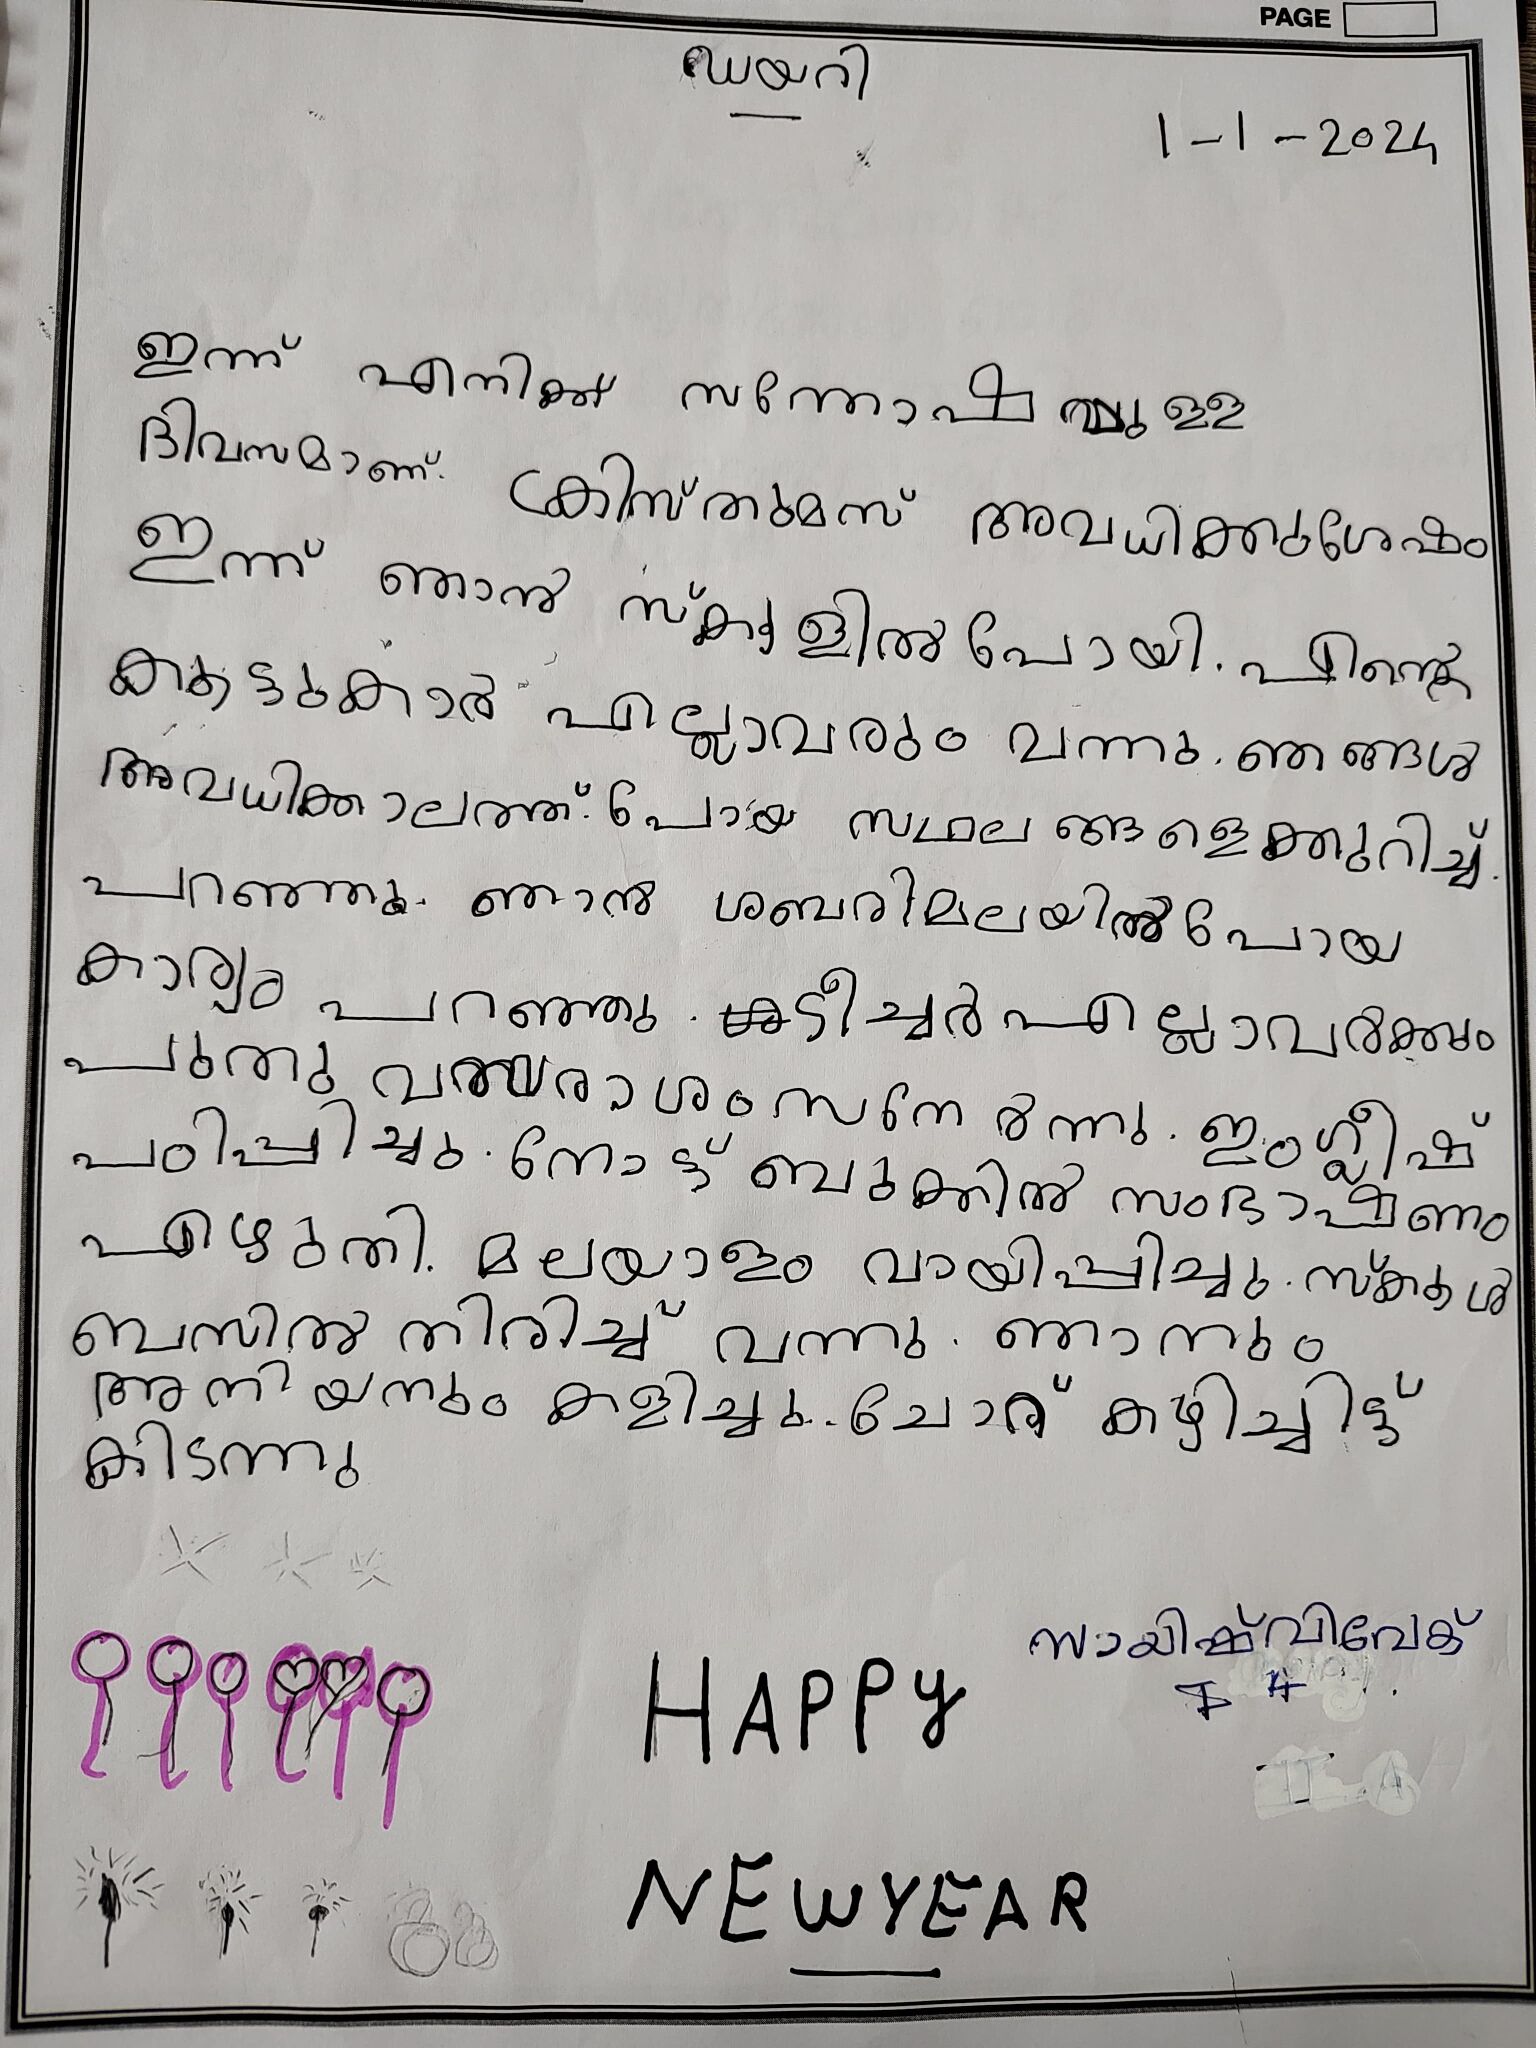 PAGE
ഡയറി
1-1-2024
ഇന്ന് എനിക്ക് സന്തോഷമുള്ള
ദിവസമാണ്. ക്രിസ്തുമസ് അവധിക്കുശേഷം
ഇന്ന് ഞാൻ സ്കൂളിൽ പോയി. എന്റെ
കൂട്ടുകാർ എല്ലാവരും വന്നു. ഞങ്ങൾ
അവധിക്കാലത്ത് പോയ സ്ഥലങ്ങളെക്കുറിച്ച്
പറഞ്ഞു. ഞാൻ ശബരിമലയിൽ പോയ
കാര്യം പറഞ്ഞു. ടീച്ചർ എല്ലാവർക്കും
പുതു വത്സരാശംസ നേർന്നു. ഇംഗ്ലീഷ്
പഠിപ്പിച്ചു. നോട്ട് ബുക്കിൽ സംഭാഷണം
എഴുതി. മലയാളം വായിപ്പിച്ചു. സ്കൂൾ
ബസിൽ തിരിച്ച് വന്നു. ഞാനും
അനിയനും കളിച്ചു. ചോറ് കഴിച്ചിട്ട്
കിടന്നു
വിവേക്
HAPPY
II A
NEWYEAR